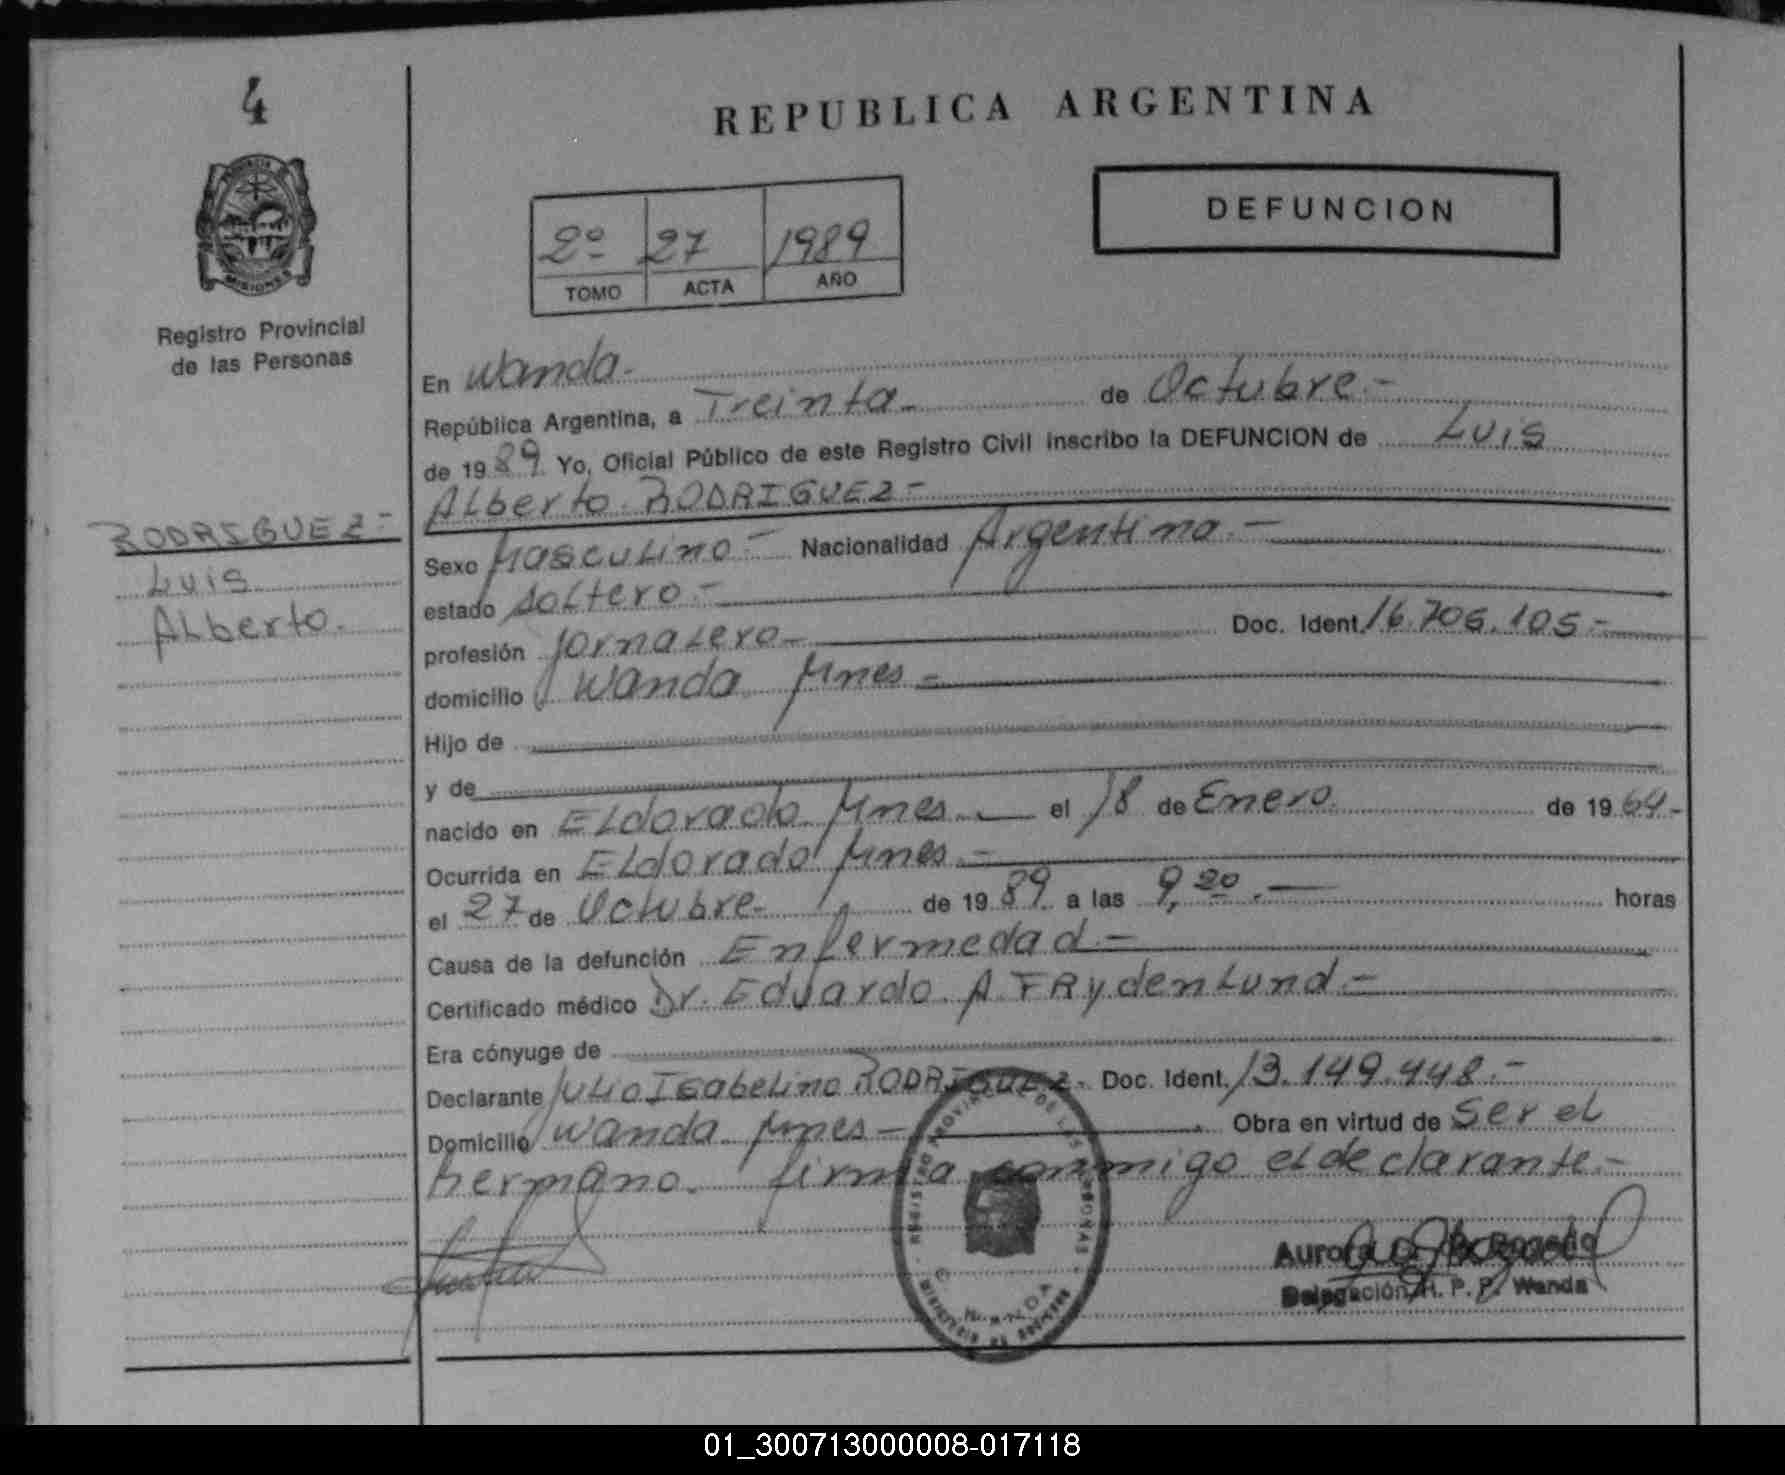 4
REPUBLICA ARGENTINA
DEFUNCION
2º 27 1989
TOMO ACTA AÑO
MISIONES
Registro Provincial
de las Personas
RODRIGUEZ-
Luis
Alberto.
En Wanda.
República Argentina, a Treinta de Octubre.-
de 1989. Yo, Oficial Público de este Registro Civil inscribo la DEFUNCION de Luis
Alberto RODRIGUEZ-
Sexo Masculino.- Nacionalidad Argentina.-
estado soltero.-
profesión Jornalero- Doc. Ident. 16.706.105.-
domicilio Wanda Mnes-
Hijo de
y de
nacido en Eldorado Mnes. el 18 de Enero. de 1964-
Ocurrida en Eldorado Mnes.-
el 27 de Octubre- de 1989. a las 9,20.- horas
Causa de la defunción Enfermedad-
Certificado médico Dr. Eduardo A FRydenlund-
Era cónyuge de
Declarante Julio Isabelino RODRIGUEZ- Doc. Ident. 13.149.448.-
Domicilio Wanda Mnes- Obra en virtud de ser el
hermano. firma conmigo el declarante.-
REGISTRO PROVINCIAL DE LAS PERSONAS
WANDA
Aurora
Delegación R. P. P. Wanda
01_300713000008-017118